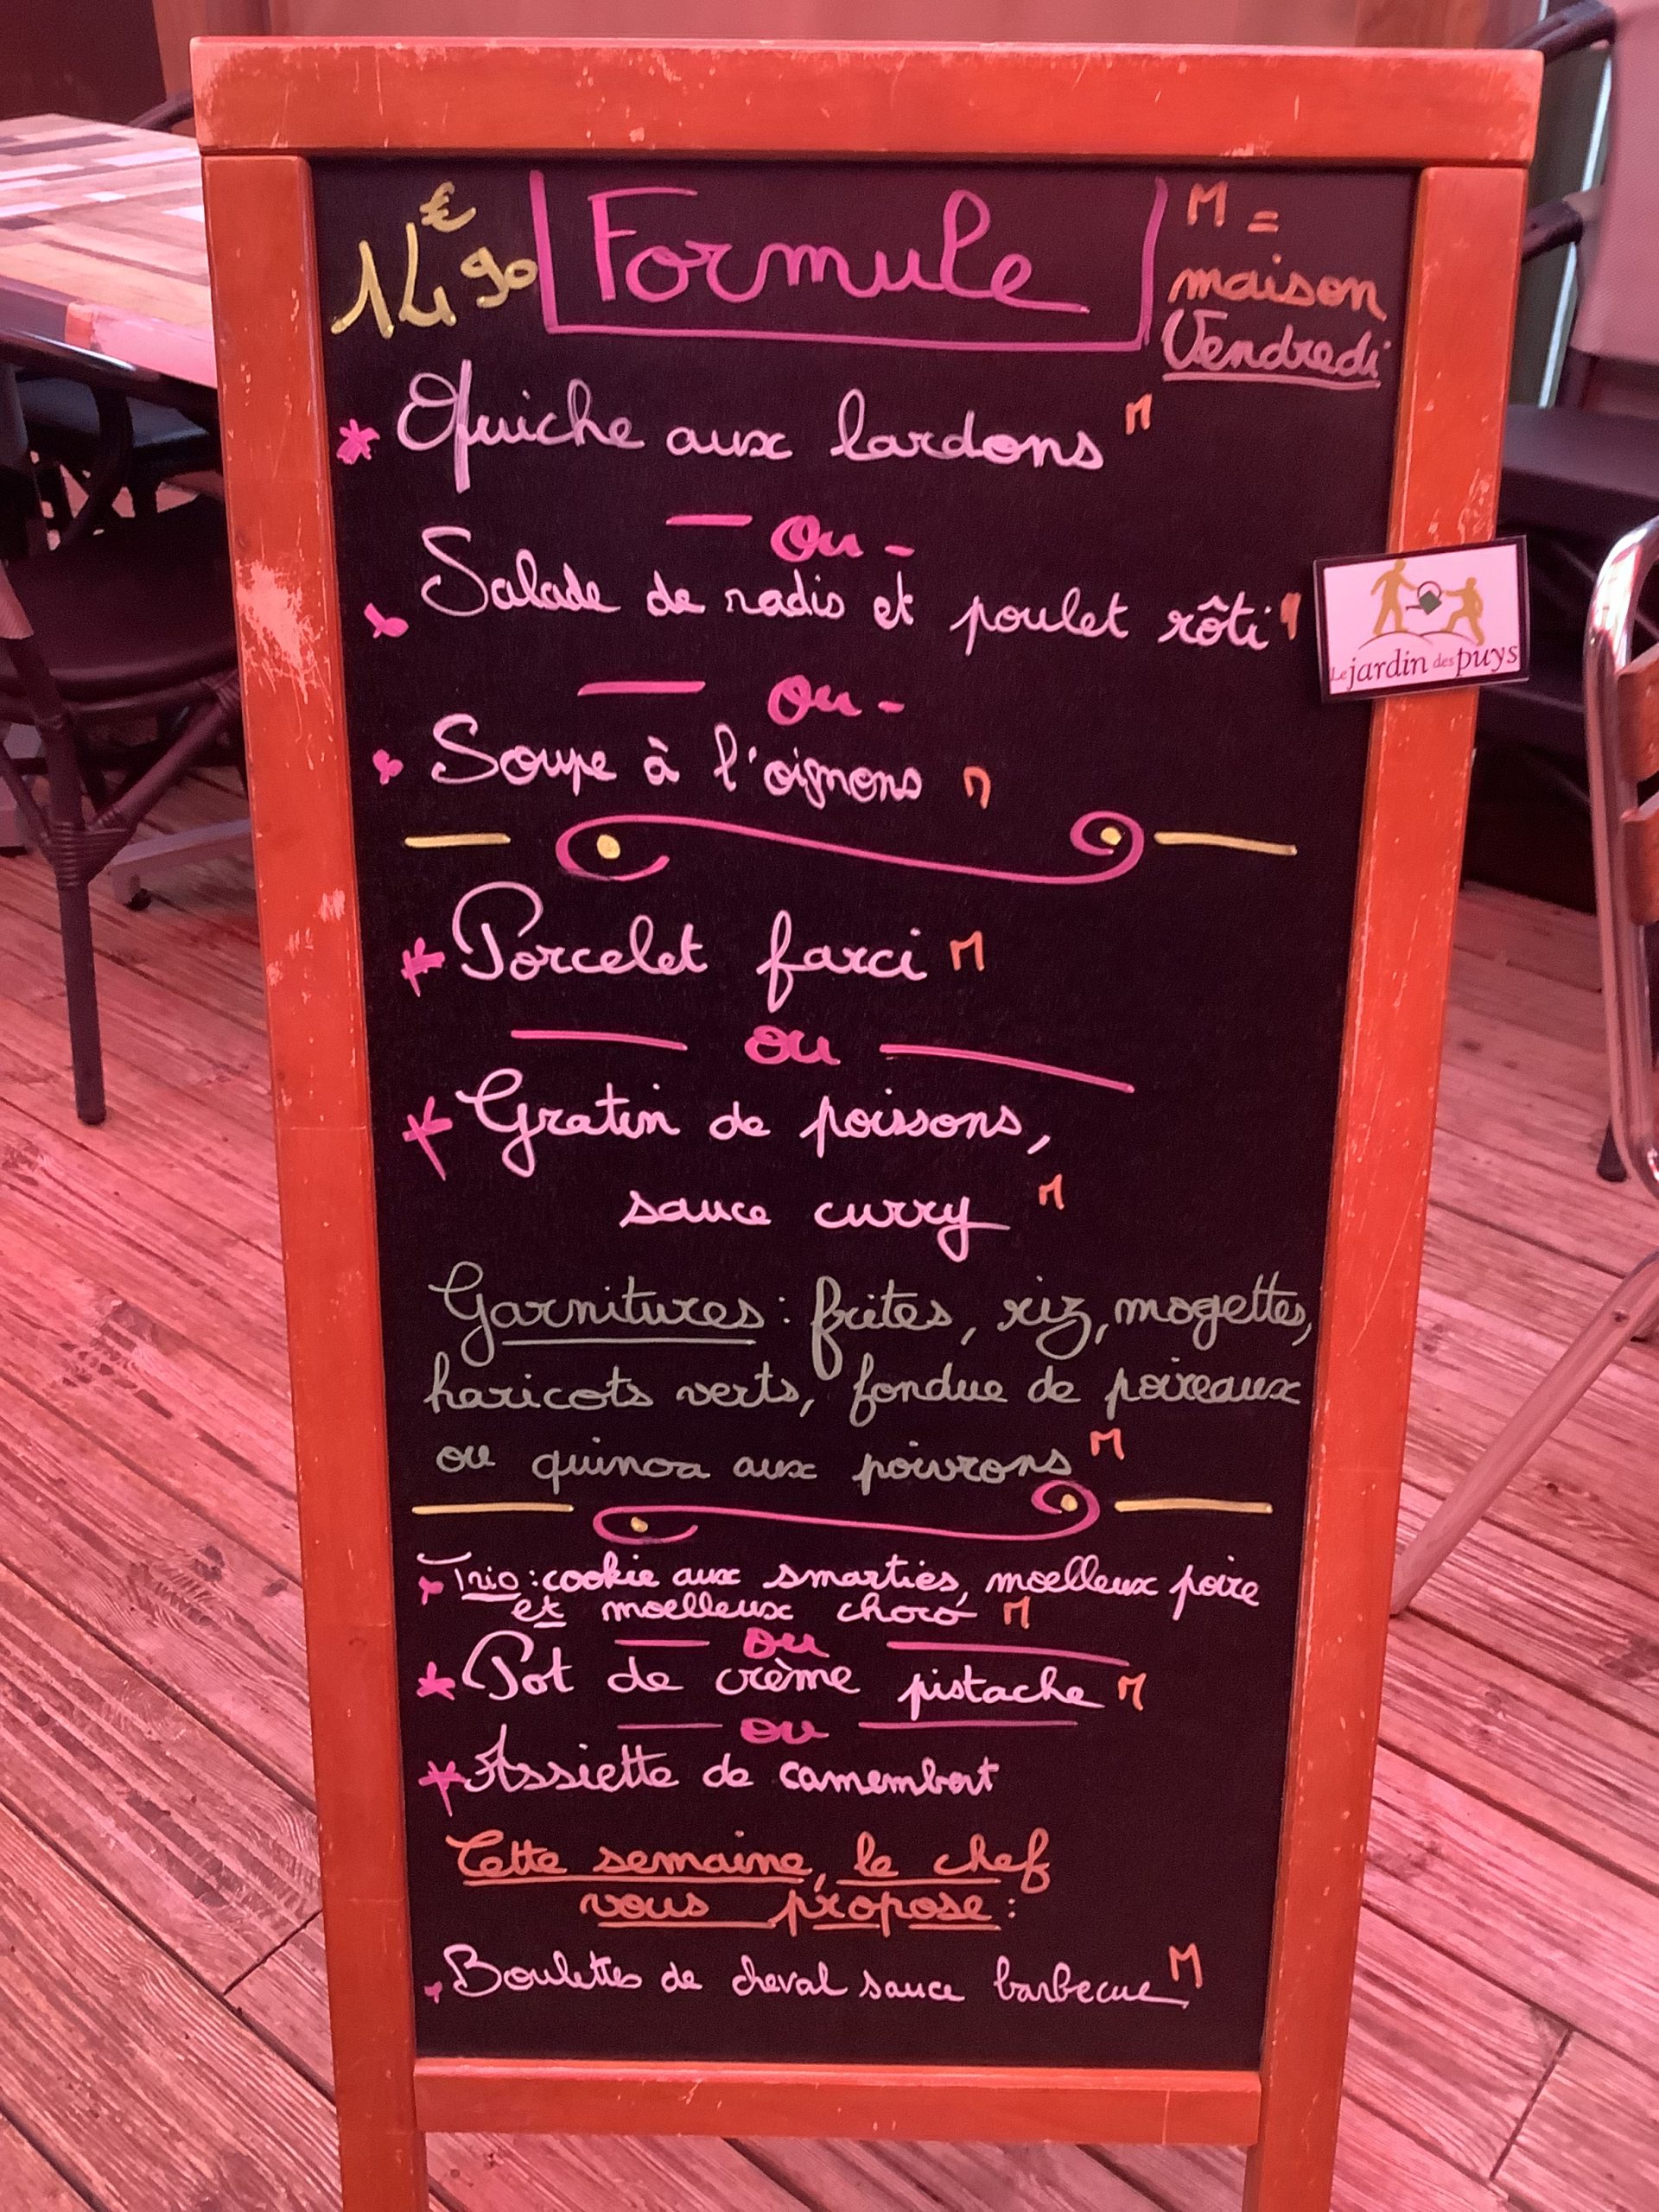 14€90 Formule M =
maison
Vendredi
Quiche aux lardons M
- ou -
Salade de radis et poulet rôti M
Le jardin des puys
- ou -
Soupe à l'oignons M
Porcelet farci M
ou
Gratin de poissons,
sauce curry M
Garnitures : frites, riz, mogettes,
haricots verts, fondue de poireaux
ou quinoa aux poivrons M
Trio : cookie aux smarties, moelleux poire
et moelleux choco M
ou
Pot de crème pistache M
ou
Assiette de camembert
Cette semaine, le chef
vous propose :
Boulettes de cheval sauce barbecue M